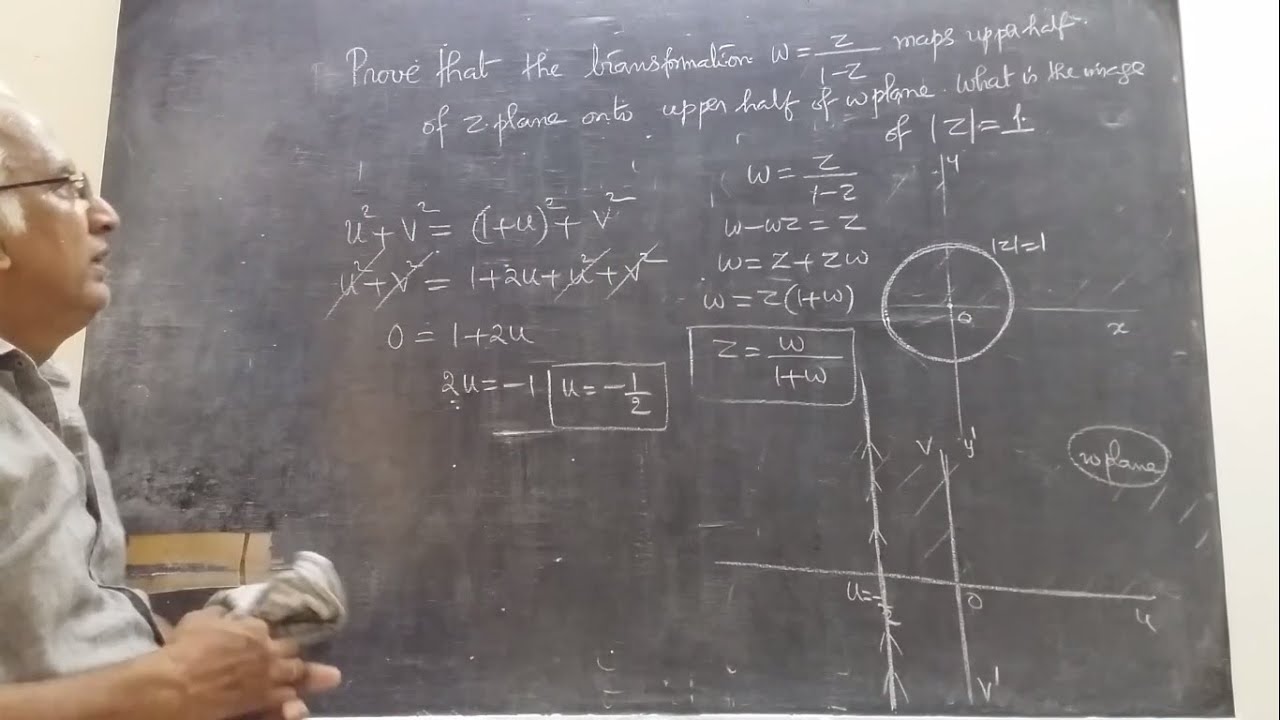 Prove that the transformation w = z/(1-z) maps upper half
of z plane onto upper half of w plane. What is the image
of |z| = 1
u² + v² = (1+u)² + v²
u² + v² = 1 + 2u + u² + v²
0 = 1 + 2u
2u = -1
u = -1/2
w = z/(1-z)
w - wz = z
w = z + zw
w = z(1+w)
z = w/(1+w)
y
|z|=1
0
x
y'
v
w plane
u = -1/2
0
u
v'